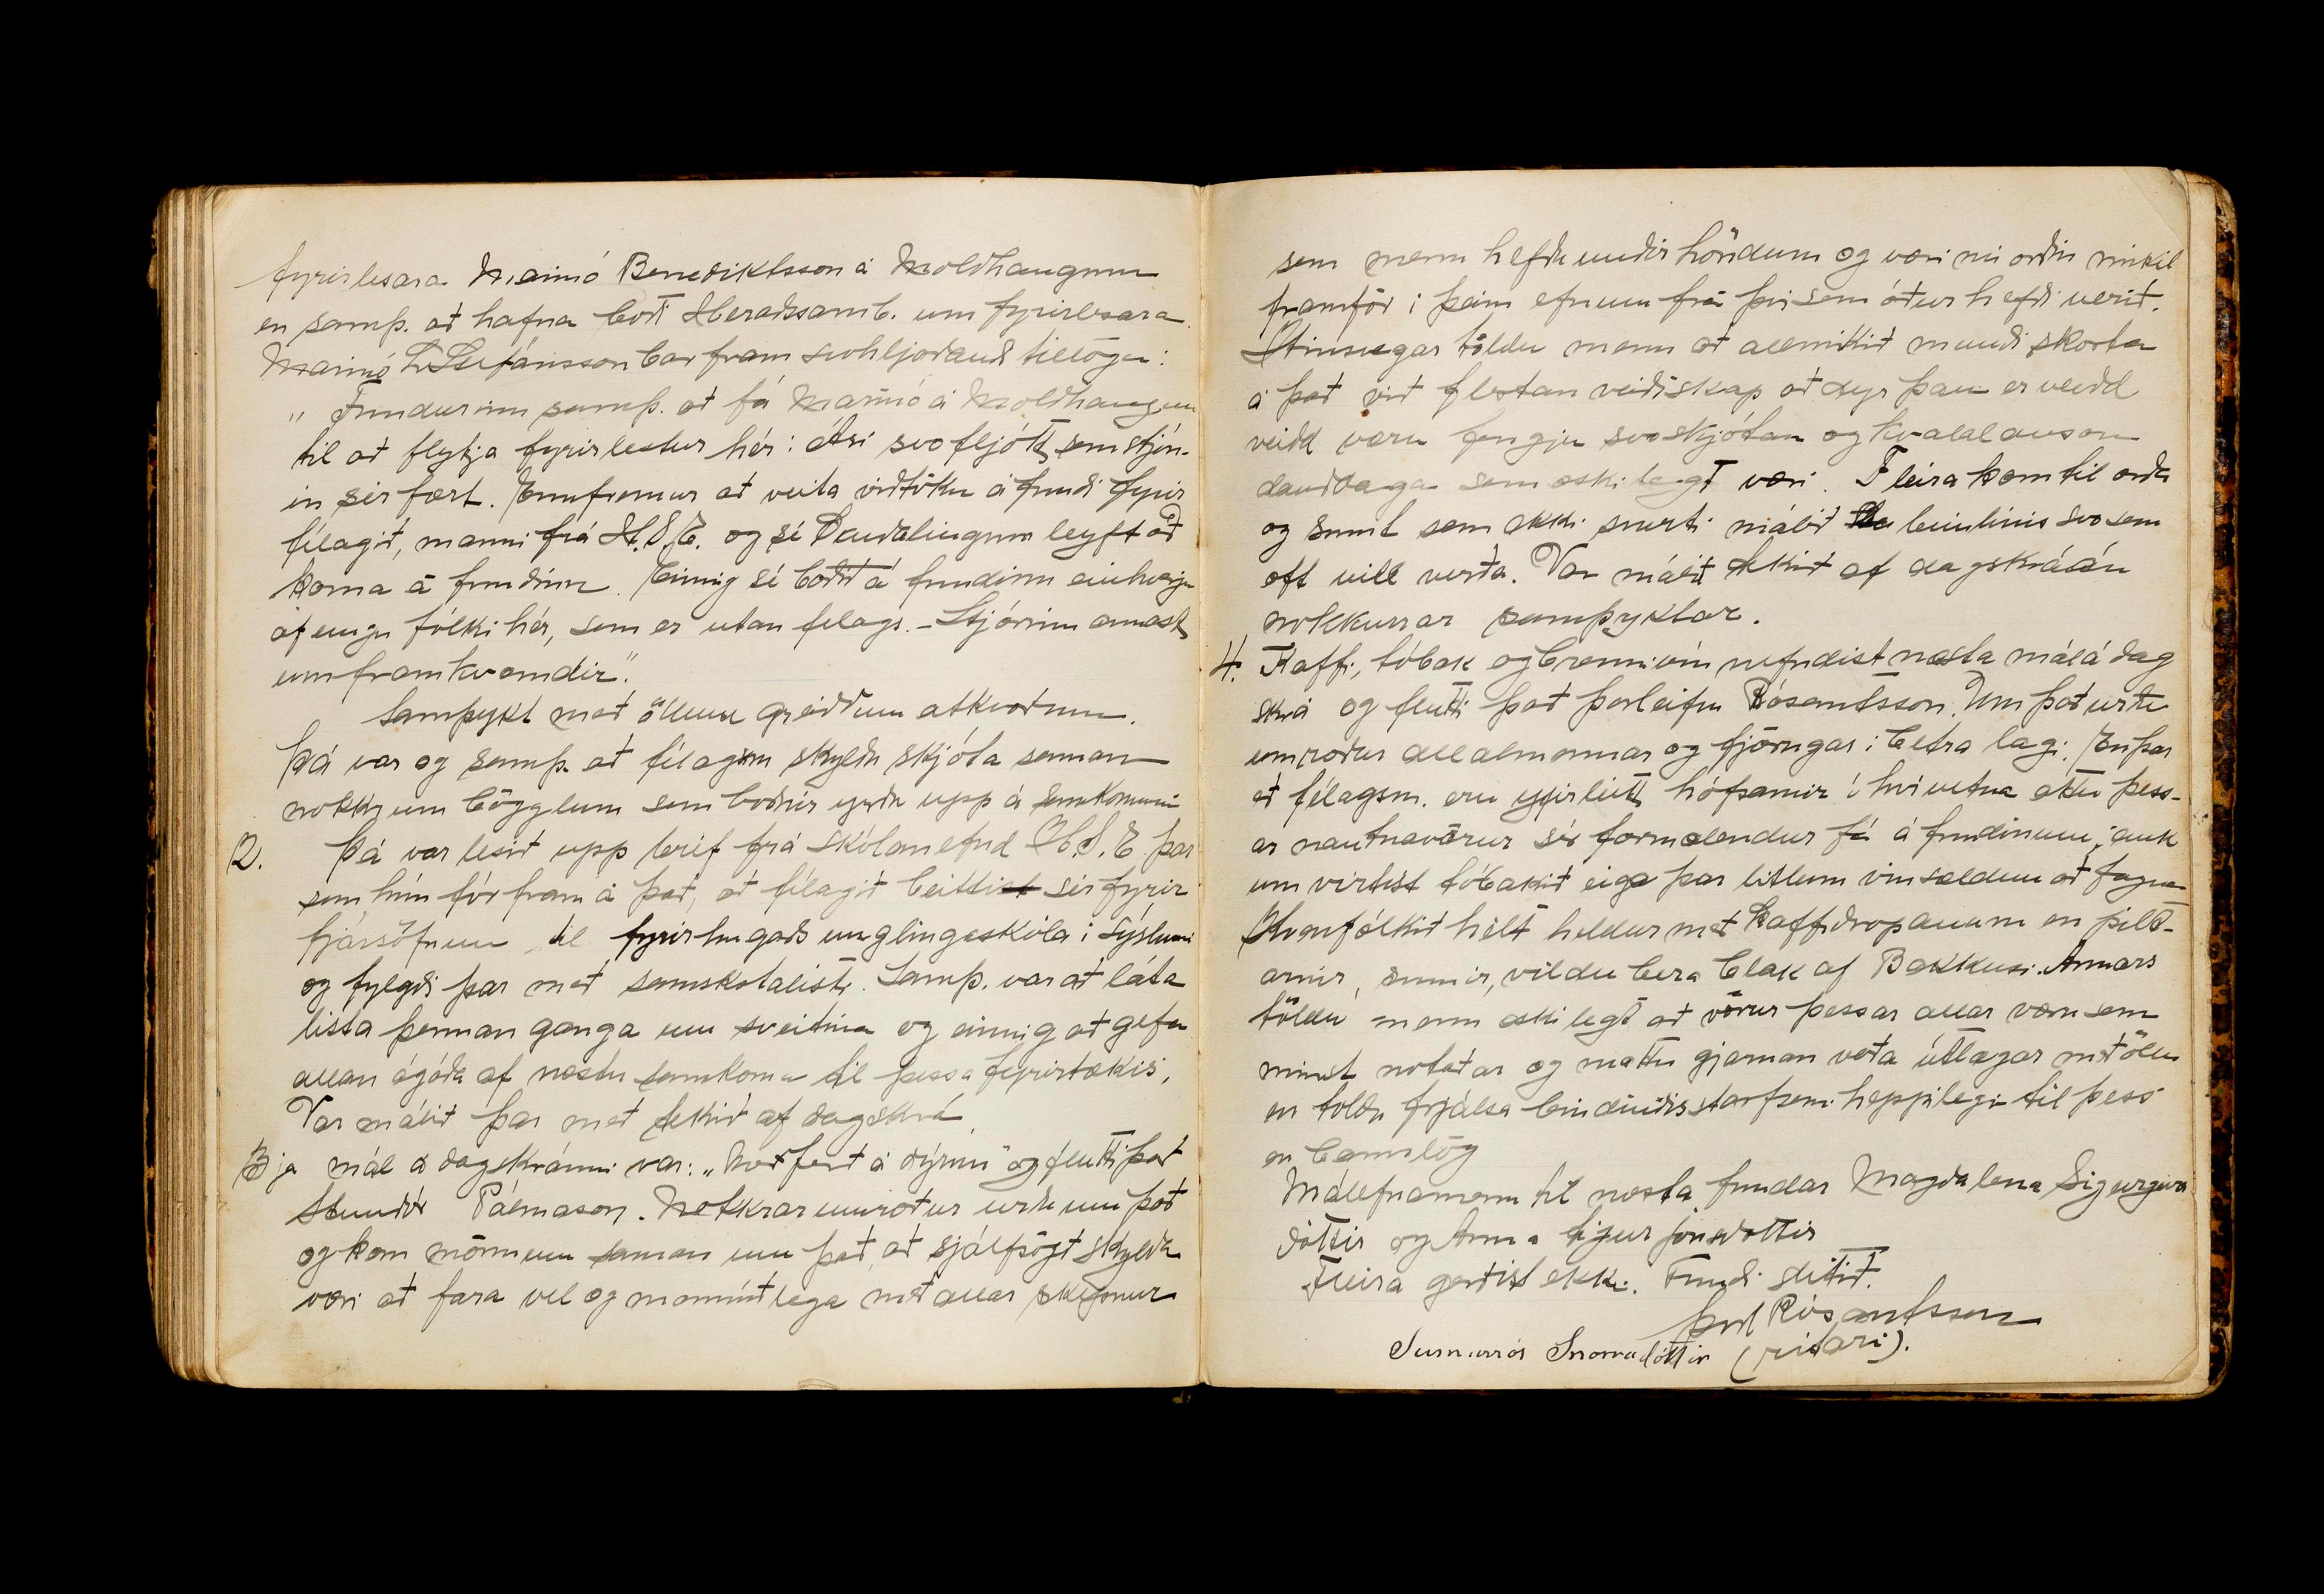 fyrirlesara Mannó Benediktsson á Moldhaugum
en samþ. að hafna boði Heraðssamb. um fyrirlesara.
Mannó L Stefánsson bar fram svohljoðandi tillögu:
„Fundurinn samþ. að fá Mannó á Moldhaugum
til að flytja fyrirlestur hér: Ási svo fljótt, sem stjórn-
in sér fært. Ennfremur að veita viðtöku á fundi fyrir
félagið, manni frá H.S.E. og sé Dauðlingum leyft að
koma á fundinn. Einnig sé boðið á fundinn einhverju
af ungu fólki hér, sem er utan felags. - Stjórnin annast
um framkvæmdir".
Samþykt með öllum greiddum atkvæðum.
Þá var og samþ. að félagsm skyldu skjóta saman
nokkrum bögglum sem boðnir yrðu upp á samkomunni
2. Þá var lesið upp bréf frá skólanefnd H.S.E. þar
sem hún fór fram á það, að félagið beitti sér fyrir
fjársöfnun til fyrirhugaðs unglingaskóla i sýslunni
og fylgdi þar með samskotalisti. Samþ. var að láta
lista þennan ganga um sveitina og einnig at gefa
allan ágóða af næstu samkomu til þessa fyrirtækis,
Var málið þar með tekið af dagskrá.
3ja mál á dagskránni var: „Meðferð á dýrum" og flutti það
Steindór Pálmason. Nokkrar umræður urðu um það
og kom mönnum saman um það, að sjálfsögð skylda
væri að fara vel og mannúðlega með allar skepnur
sem menn hefðu undir höndum og væri nú orðin mikil
framför i þeim efnum frá þvi sem áður hefði verið.
Hinsvegar töldu menn að allmikið mundi skorta
á það við flestan veiðiskap að dyr þau er veidd
veidd væru fengju svo skjótan og kvalalausan
dauðdaga sem æskilegt væri. Fleira kom til orða
og sumt sem ekki snerti málið beinlinis svo sem
oft vill verða. Var málið tekið af dagskrá án
nokkurrar samþyktar.
4. Kaffi, tóbak og brennivín nefndist næsta mál á dag
skrá og flutti það Þorleifur Rósantsson. Um það urðu
umræður allalmennar og fjörugar i betra lagi. En þar
að félagsm. eru yfirleitt hófsamir i hvivetna áttu þess-
ar nautnavörur sér formælendur fá á fundinum, einkum
virtist tóbakið eiga þar litlum vinsældum að fagna
Kvenfólkið hélt heldur með kaffidropanum en pilt-
arnir, sumir, vildu bera blak af Bakkusi. Annars
töldu menn æskilegt að vörur þessar allar væru sem
minst notaðar og mættu gjarnan verða útlægar með öllu
en töldu frjálsa bindindisstarfsemi heppilegri til þess
en bannlög
Málefnamenn til næsta fundar Magdalena Sigurgeirs
dóttir og Anna Sigurjónsdóttir
Fleira gerðist ekki. Fundi slitið.
Þorl Rósantsson
Sumarrós Snorradóttir (ritari).